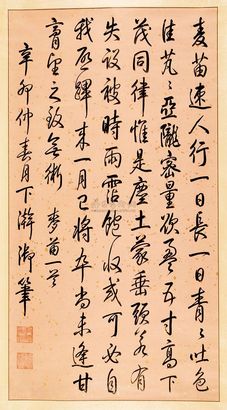 麥苗速人行一日長一日青〻吐色
佳芃〻亞隴密量欲盈五寸高下
茂同律惟是塵土蒙垂頭若有
失設被時雨霑飽收或可必自
我啟蹕来一月已將卒尚未逢甘
膏望之致無術 麥苗一首
辛卯仲春月下澣御筆